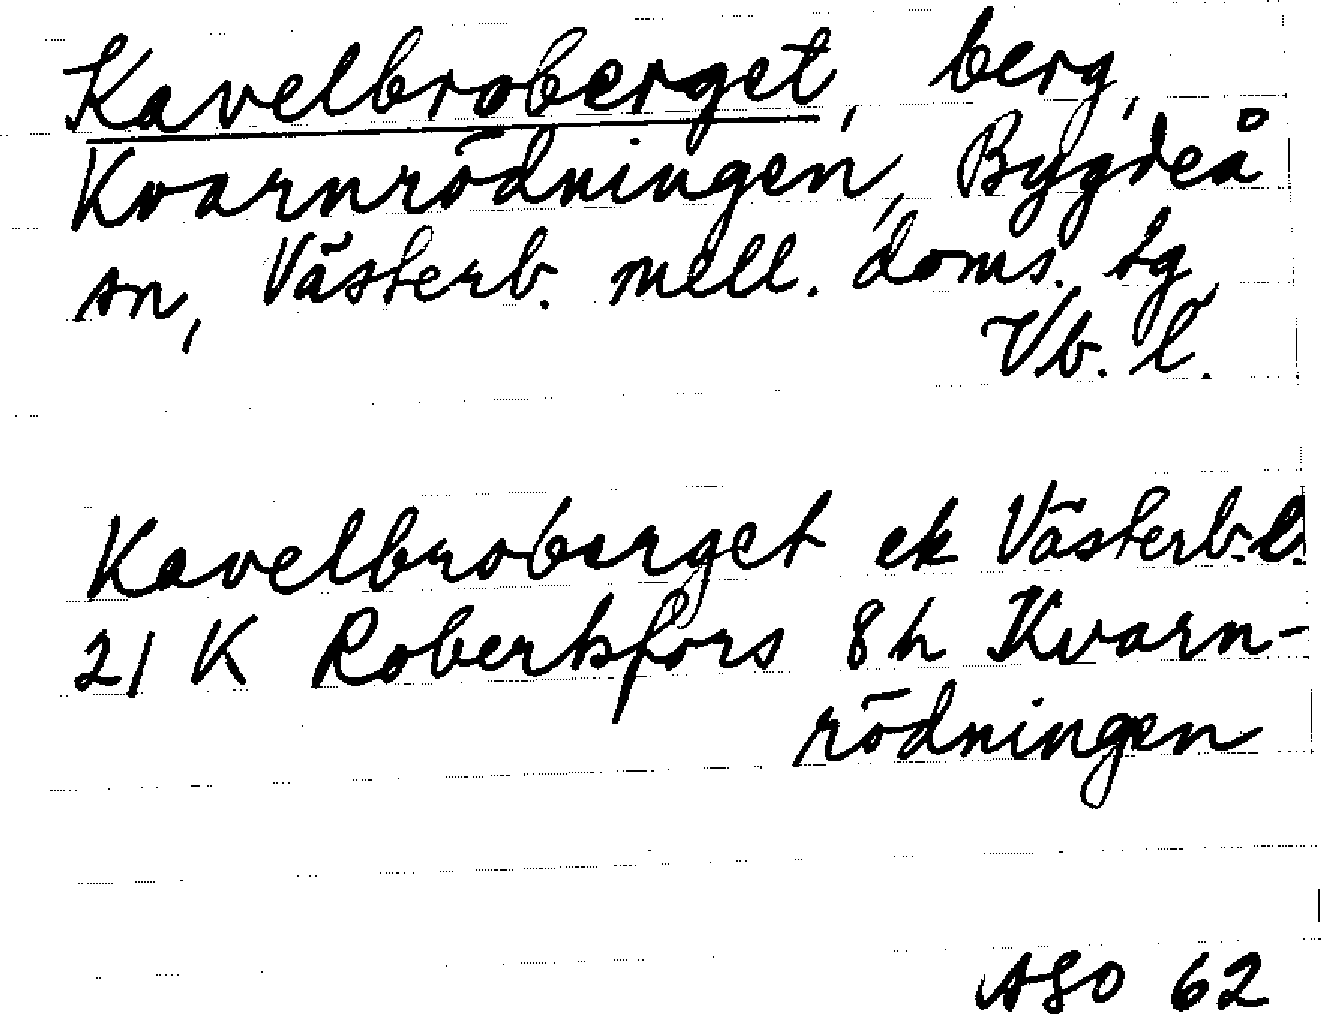 Kavelbroberget, berg,
Kvarnrödningen, Bygdeå
sn, Västerb. mell. doms. tg,
Vb. l.
Kavelbroberget ek Västerb. l.
21 K Robertsfors 8 h Kvarn-
rödningen
ASO 62